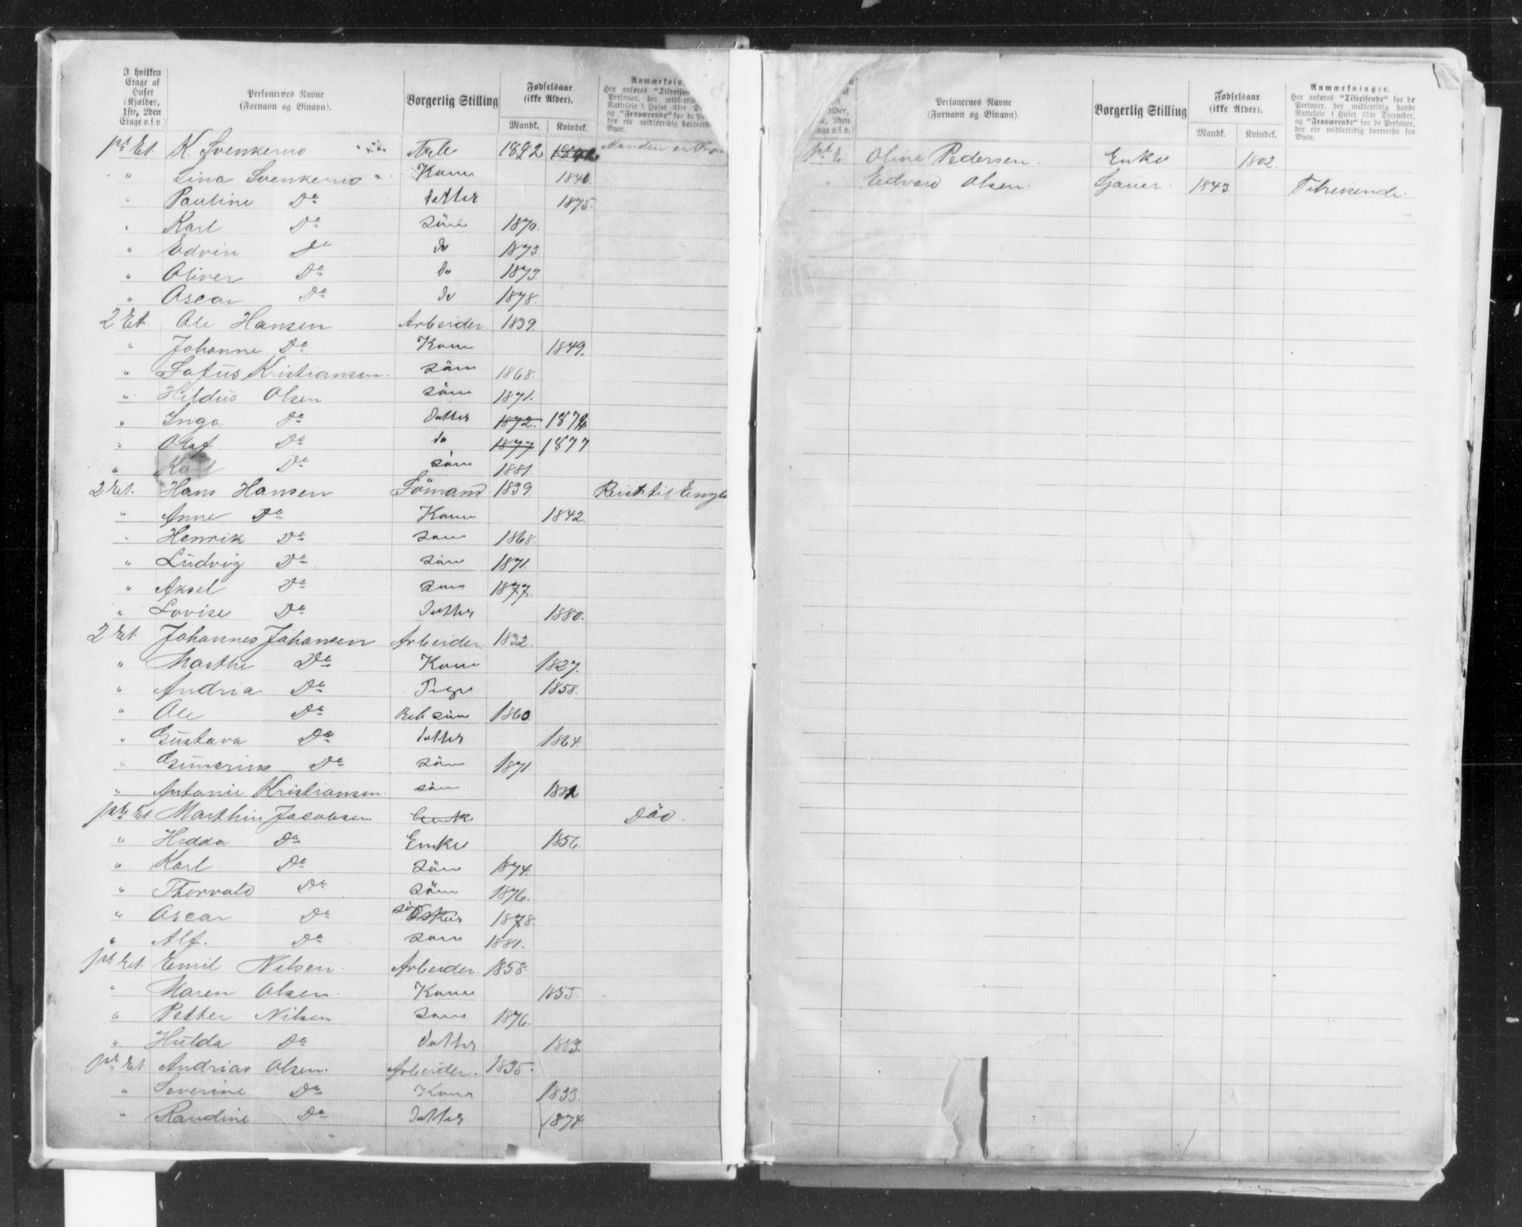 I hvilken Etage af Huset (Kjælder, 1ste, 2den Etage o.s.v.)
Personernes Navne (Fornavn og Binavn).
Borgerlig Stilling
Fødselsaar (ikke Alder).
Mandk. Kvindek.
Her anføres "Tilreisende
og "Fraværende" for de
K. Svenkerud 1842
Lina Svenkerud Kone 1840
" Pauline Do datter 1875
" Karl Do søn 1870
" Edvin Do do 1873
" Oliver Do do 1873
" Oscar Do do 1878.
2 Et. Ole Hansen Arbeider 1839
" Johanne Do Kone 1849.
" Sofus Kristiansen søn 1868.
" Hildus Olsen søn 1871.
" Inga Do datter 1872.
" Olaf Do do 1877 1877
" Karl Do søn 1881.
2 Et. Hans Hansen Sömand 1839 Reist til
" Anne Do Kone 1842
" Henrik Do søn 1868.
" Ludvig Do søn 1871.
" Aksel Do søn 1877.
" Lovise Do datter 1880.
2 Et. Johannes Johansen Arbeider 1832.
" Marthe Do Kone 1827.
" Andria Do Pige 1858.
" Ole Do søn 1860
" Gustava Do datter 1864
" Gunerius Do søn 1871
" Antonie Kristiansen søn
Et. Marthin Jacobsen Död.
" Hedda Do Enke 1856.
" Karl Do Søn 1874.
" Thorvald Do søn 1876.
" Oscar Do 1878.
" Alf. Do søn 1881.
Et. Emil Nilsen. Arbeider. 1858
" Maren Olsen. Kone 1855.
" Petter Nilsen søn 1876.
" Hulda Do datter 1883.
Et Andrias Olsen. Arbeider. 1835.
" Severine Do Kone 1833.
" Randine Do datter 1874
Personernes Navne (Fornavn og Binavn).
Borgerlig Stilling
Fødselsaar (ikke Alder).
Mandk. Kvindek.
Anmærkninger.
Her anføres "Tilreisende" for de Personer, der midlertidig havde Natteleie i Huset 31te December, og "Fraværende" for de Personer, der ere midlertidig bortreiste fra Byen.
Oline Pedersen. Enke 1802.
Edvard Olsen. 1843 Tilreisende.